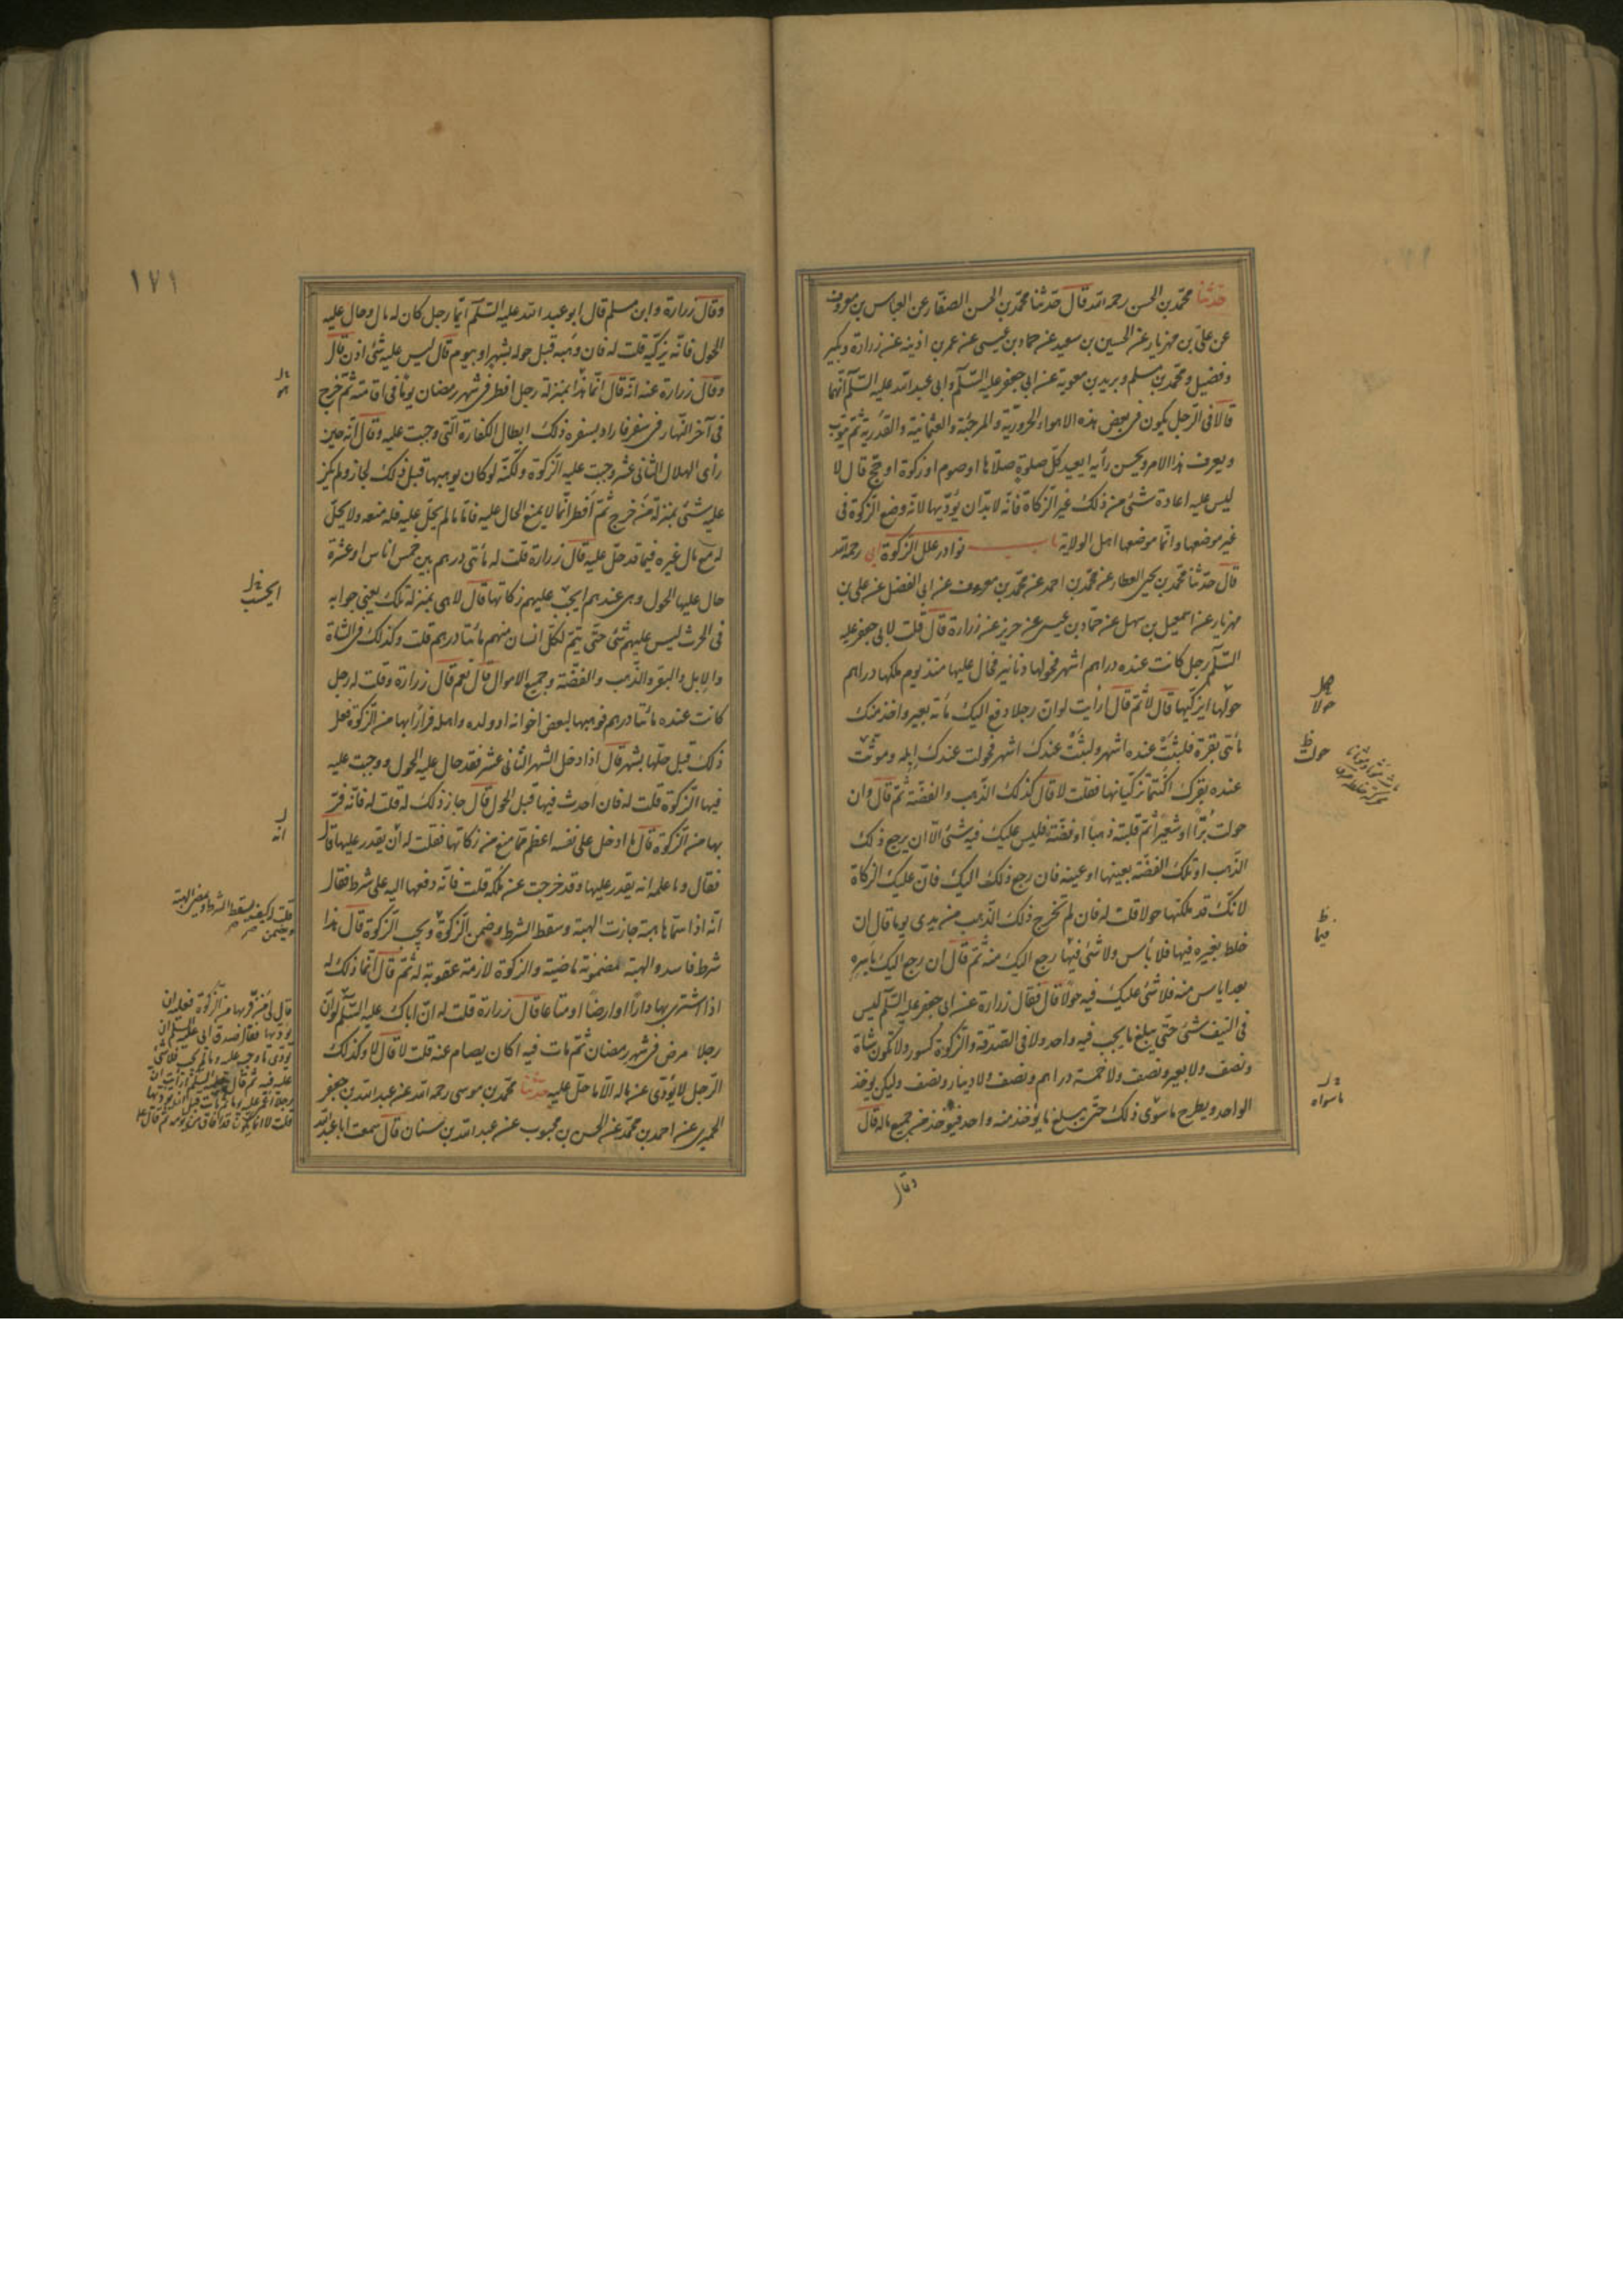 حدثنا محمد بن الحسن رحمه الله قال حدثنا محمد بن الحسن الصفار عن العباس بن معروف
عن علي بن مهزيار عن الحسين بن سعيد عن حماد بن عيسى عن عمر بن اذينه عن زرارة وبكير
وفضيل ومحمد بن مسلم وبريد بن معوية عن ابي جعفر عليه السلم وابي عبد الله عليه السلم انهما
قالا في الرجل يكون في بعض هذه الاهواء الحرورية والمرجئة والعثمانية والقدرية ثم يتوب
ويعرف هذا الامر ويحسن رأيه ايعيد كل صلوة صلاها او صوم او زكوة او حج قال لا
ليس عليه اعادة شئ من ذلك غير الزكاة فانه لا بد ان يؤديها لانه وضع الزكوة في
غير موضعها وانما موضعها اهل الولاية باب نوادر علل الزكوة ابي رحمه الله
قال حدثنا محمد بن يحيى العطار عن محمد بن احمد عن محمد بن معروف عن ابي الفضل عن علي بن
مهزيار عن اسمعيل بن سهل عن حماد بن عيسى عن حريز عن زرارة قال قلت لابي جعفر عليه
السلم رجل كانت عنده دراهم اشهر فحولها دنانير فحال عليها منذ يوم ملكها دراهم
حولها ايزكيها قال لا ثم قال أرأيت لو ان رجلا دفع اليك مأته بعير واخذ منك
مأتي بقرة فلبثت عنده اشهر ولبثت عندك اشهر فحولت عندك ابله وموتت
عنده بقرك اكنتما تزكيانها فقلت لا قال كذلك الذهب والفضة ثم قال وان
حولت بُرّا او شعيرا ثم قلبته ذهبا او فضة فليس عليك فيه شئ الا ان يرجع ذلك
الذهب او تلك الفضة بعينها او عينه فان رجع ذلك اليك فان عليك الزكاة
لانك قد ملكتها حولا قلت له فان لم تخرج ذلك الذهب من يدي يوما قال ان
خلط بغيره فيها فلا بأس ولا شئ فيها رجع اليك منه ثم قال ان رجع اليك باسره
بعد اياس منه فلا شئ عليك فيه حولا قال فقال زرارة عن ابي جعفر عليه السلم ليس
في النيف شئ حتى يبلغ ما يجب فيه واحد ولا في الصدقة والزكوة كسور ولا تكون شاة
ونصف ولا بعير ونصف ولا خمسة دراهم ونصف ولا دينار ونصف وليكن يوخذ
الواحد ويطرح ما سوى ذلك حتى يبلغ ما يؤخذ منه واحد فيؤخذ من جميع ماله قال
وقال
حولا
حولت
فيما
ما سواه
١٧١
وقال زرارة وابن مسلم قال ابو عبد الله عليه السلم ايما رجل كان له مال وحال عليه
الحول فانه يزكيه قلت له فان وهبه قبل حوله بشهر او بيوم قال ليس عليه شئ اذن قال
وقال زرارة عنه انه قال انما هذا بمنزلة رجل افطر في شهر رمضان يوما في اقامته ثم خرج
في آخر النهار في سفر فاراد بسفره ذلك ابطال الكفارة التي وجبت عليه وقال انه حين
رأى الهلال الثاني عشر وجبت عليه الزكوة ولكنه لو كان يوهبها قبل ذلك لجاز ولم يكن
عليه شئ بمنزلة من خرج ثم أفطر انما لا يمنع الحال عليه فاما ما لم يحل عليه فله منعه ولا يحل
له منع مال غيره فيما قد حل عليه قال زرارة قلت له مأتي درهم بين خمس اناس او عشرة
حال عليها الحول وهي عندهم ايجب عليهم زكاتها قال لا هي بمنزله تلك يعني جوابه
في الحرث ليس عليهم شئ حتى يتم لكل انسان منهم مائتا درهم قلت وكذلك في الشاة
والابل والبقر والذهب والفضة وجميع الاموال قال نعم قال زرارة وقلت له رجل
كانت عنده مائتا درهم فوهبها لبعض اخوانه او ولده واهله فرارا بها من الزكوة فعل
ذلك قبل حلها بشهر قال اذا دخل الشهر الثاني عشر فقد حال عليه الحول ووجبت عليه
فيها الزكوة قلت له فان احدث فيها قبل الحول قال جاز ذلك له قلت له فانه فر
بها من الزكوة قال ما ادخل على نفسه اعظم مما منع من زكاتها فقلت له ان يقدر عليها قال
فقال وما علمه انه يقدر عليها وقد خرجت عن ملكه قلت فانه دفعها اليه على شرط فقال
انه اذا سماها هبة جازت الهبة وسقط الشرط وضمن الزكوة ويجب الزكوة قال هذا
شرط فاسد والهبة المضمونة ماضية والزكوة لازمة عقوبة له ثم قال انما ذلك له
اذا اشترى بها دارا او ارضا او متاعا قال زرارة قلت له ان اباك عليه السلم لو ان
رجلا مرض في شهر رمضان ثم مات فيه اكان يصام عنه قلت لا قال لا وكذلك
الرجل لا يؤدي عن ماله الا ما حل عليه حدثنا محمد بن موسى رحمه الله عن عبد الله بن جعفر
الحميري عن احمد بن محمد عن الحسن بن محبوب عن عبد الله بن سنان قال سمعت ابا عبد الله
ايجب
انه
قلت له كيف يسقط الشرط ويمضى الهبة
ويضمن
قال لي من فر بها من الزكوة فعليه ان
يؤديها فقال صدق ابي عليه السلم ان
يؤدي ما وجب عليه وما لم يجب فلا شئ
عليه فيه ثم قال عليه السلم أرأيت لو ان